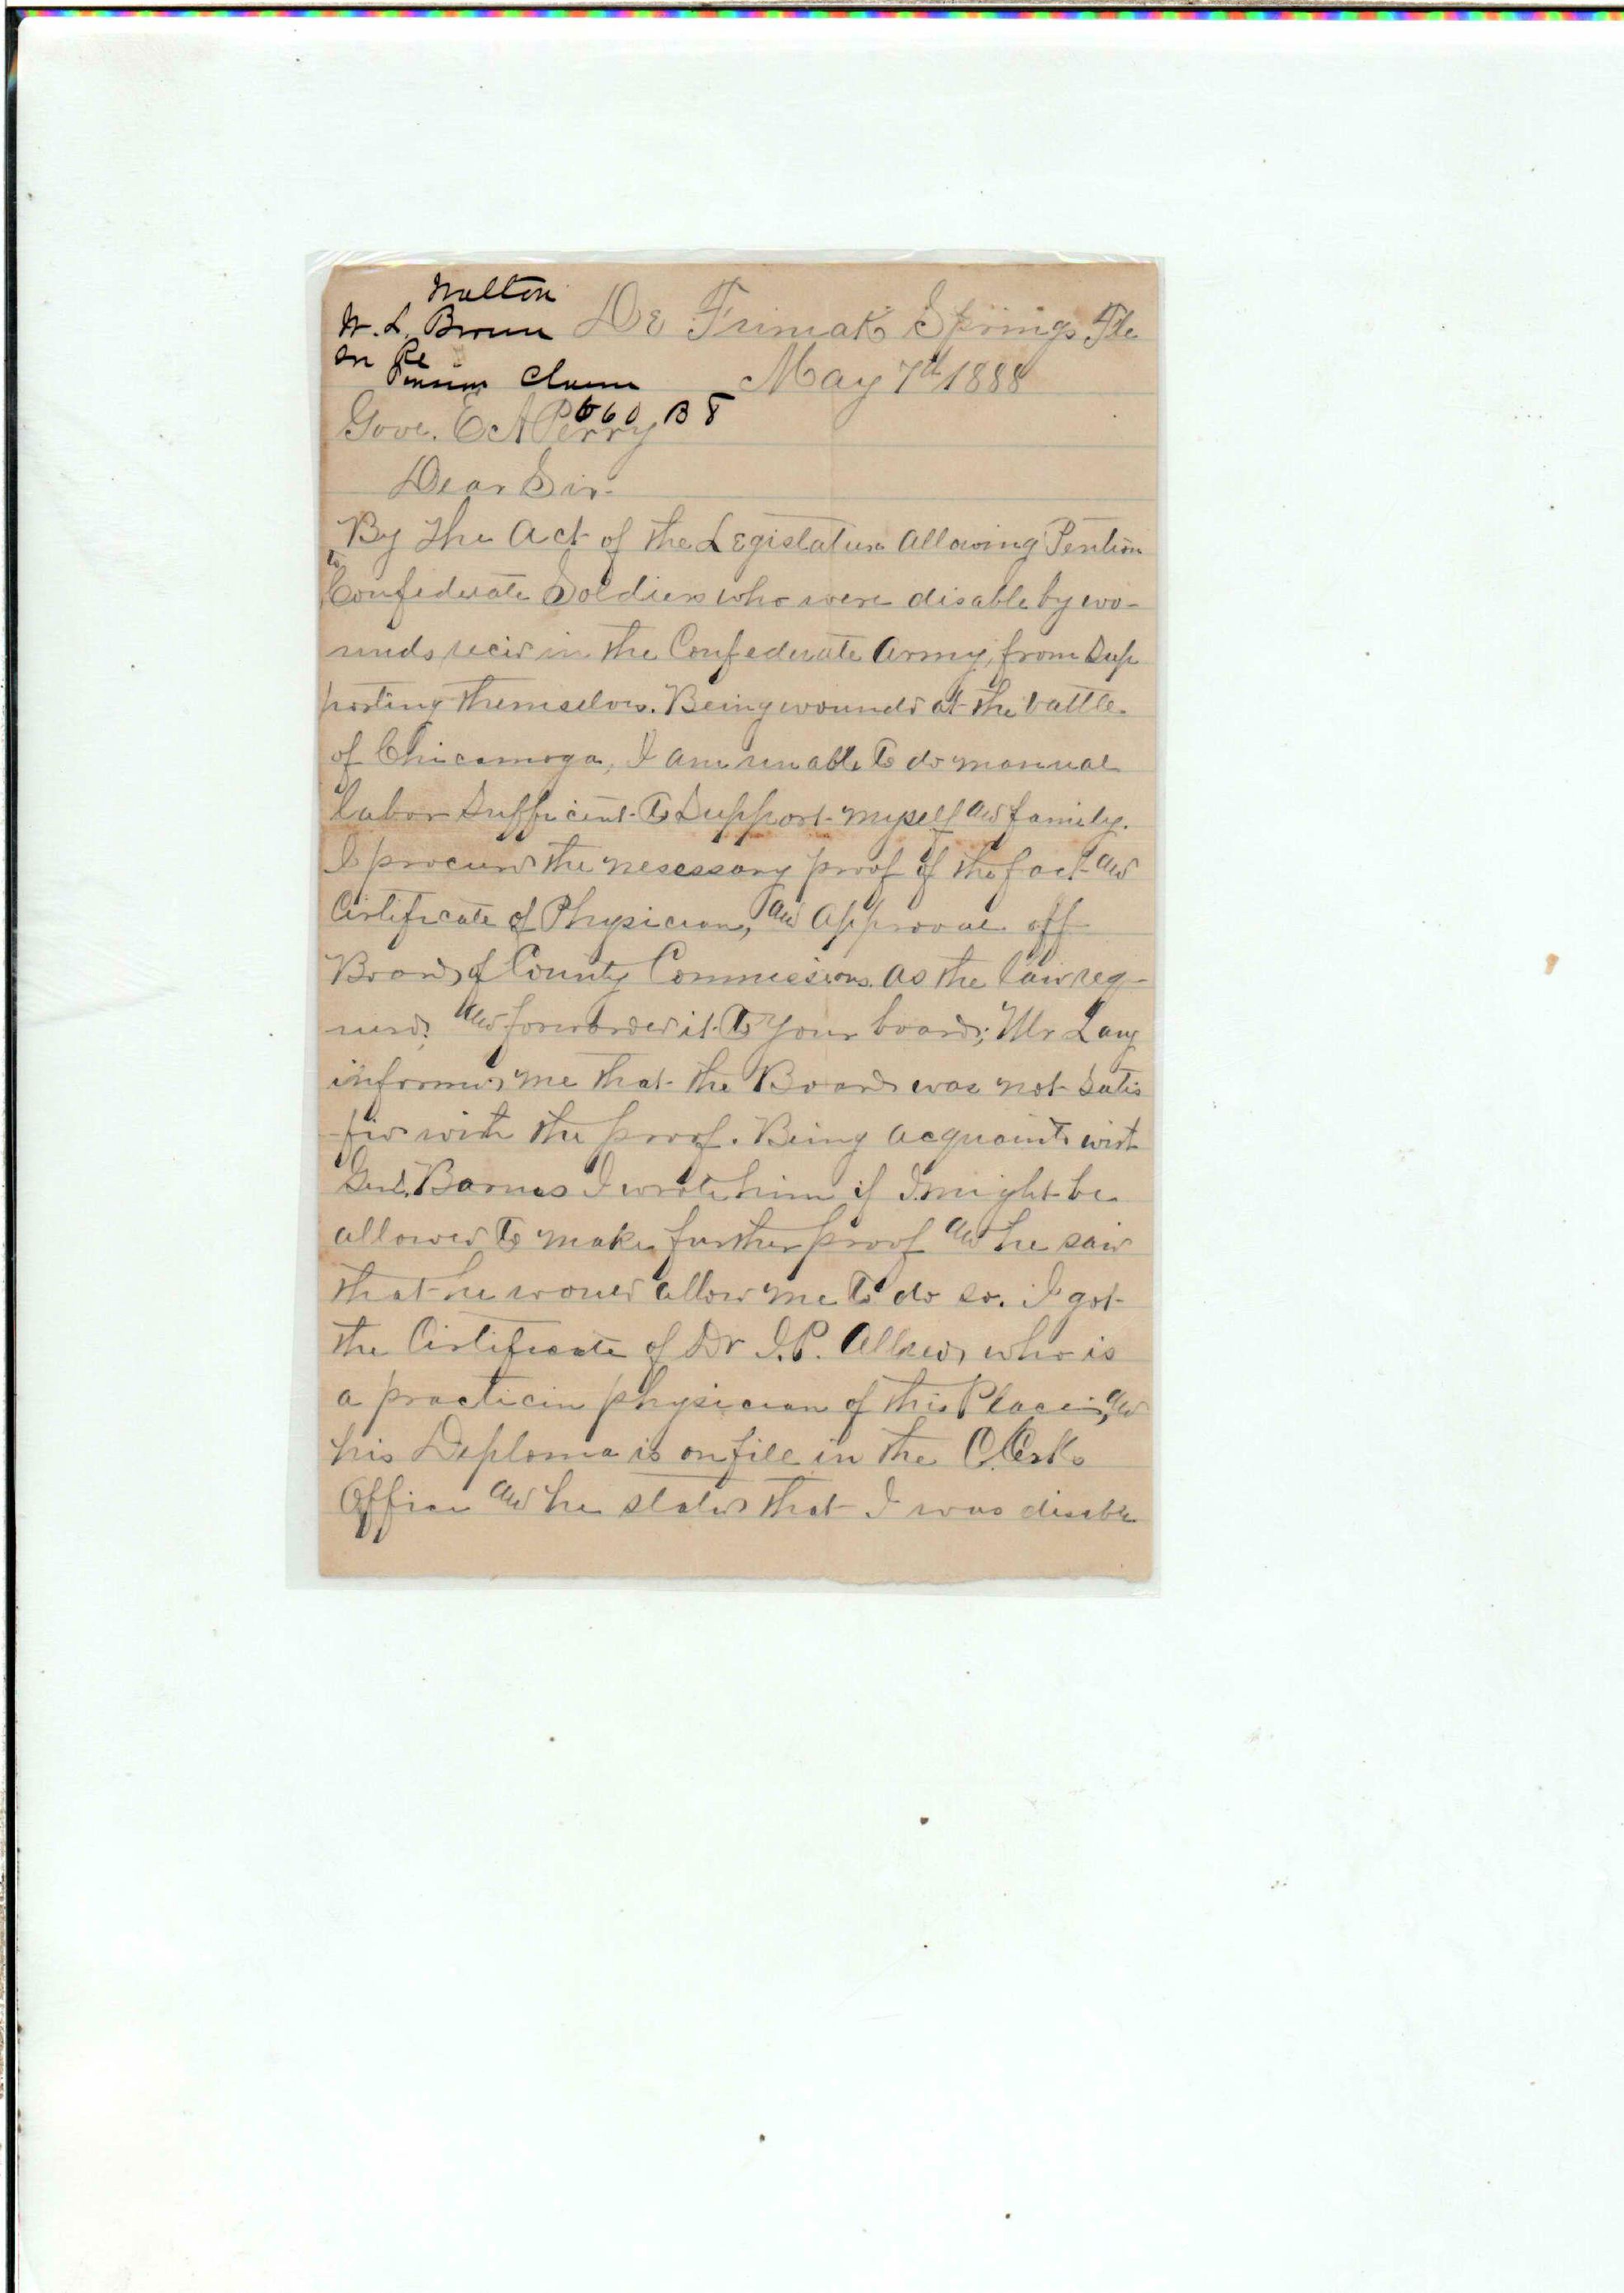 Walton
W. L. Brown
In Re
Pension Claim
660 B 8
De Funiak Springs Fla
May 7th 1888
Gove. E A Perry
Dear Sir.
By the Act of the Legislature allowing Pention
to Confederate Soldiers who were disable by wo-
unds recivd in the Confederate Army, from Sup
porting themselvs. Being wounded at the battle
of Chicamoga, I am unable to do manual
labor Sufficient to Support myself and family.
I procured the nesessary proof of the fact and
Certificate of Physician, and Approval off
Board of County Commissions as the law req-
uird, and forwarded it to your board; Mr Lang
informed me that the Board was not Satis
-fid with the proof. Being acquaint with
Genl. Barnes I wrote him if I might be
allowed to make further proof and he said
that he would allow me to do so. I got
the Certificate of Dr who is
a practicin physician of this Place, and
his Deploma is on file in the C. Clerks
Office and he stated that I was